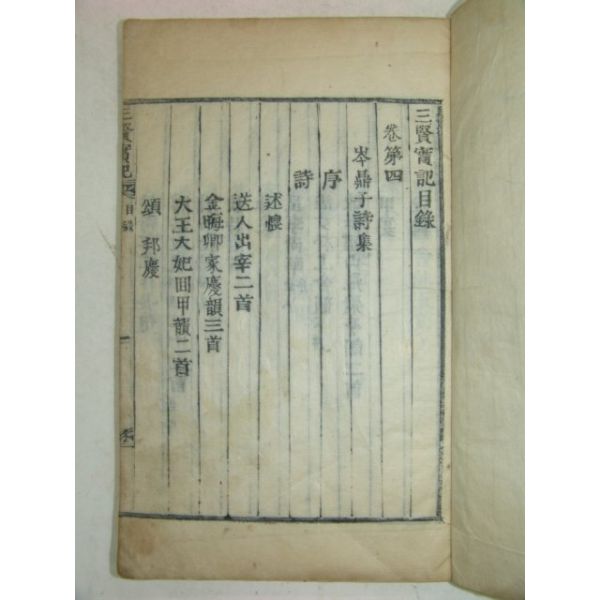 三賢實記目錄
卷第四
岑鼎子詩集
序
詩
述懷
送人出宰二首
金晦卿家慶韻三首
大王大妃回甲韻二首
頌邦慶
三賢實記 目錄 一